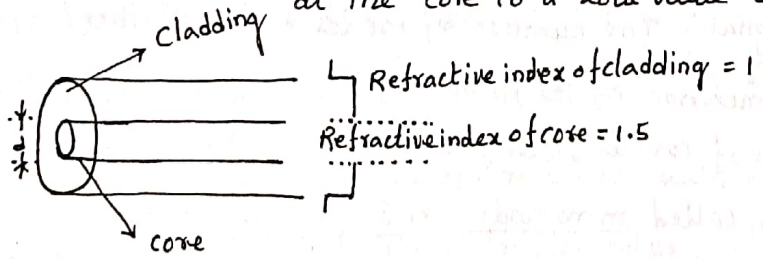 at the core is a
cladding
Refractive index of cladding = 1
d
Refractive index of core = 1.5
core